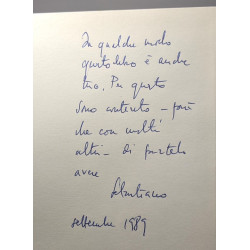 In qualche modo
questo libro è anche
tuo. Per questo
sono contento - più
che con molti
altri - di
avere
Sebastiano
settembre 1989